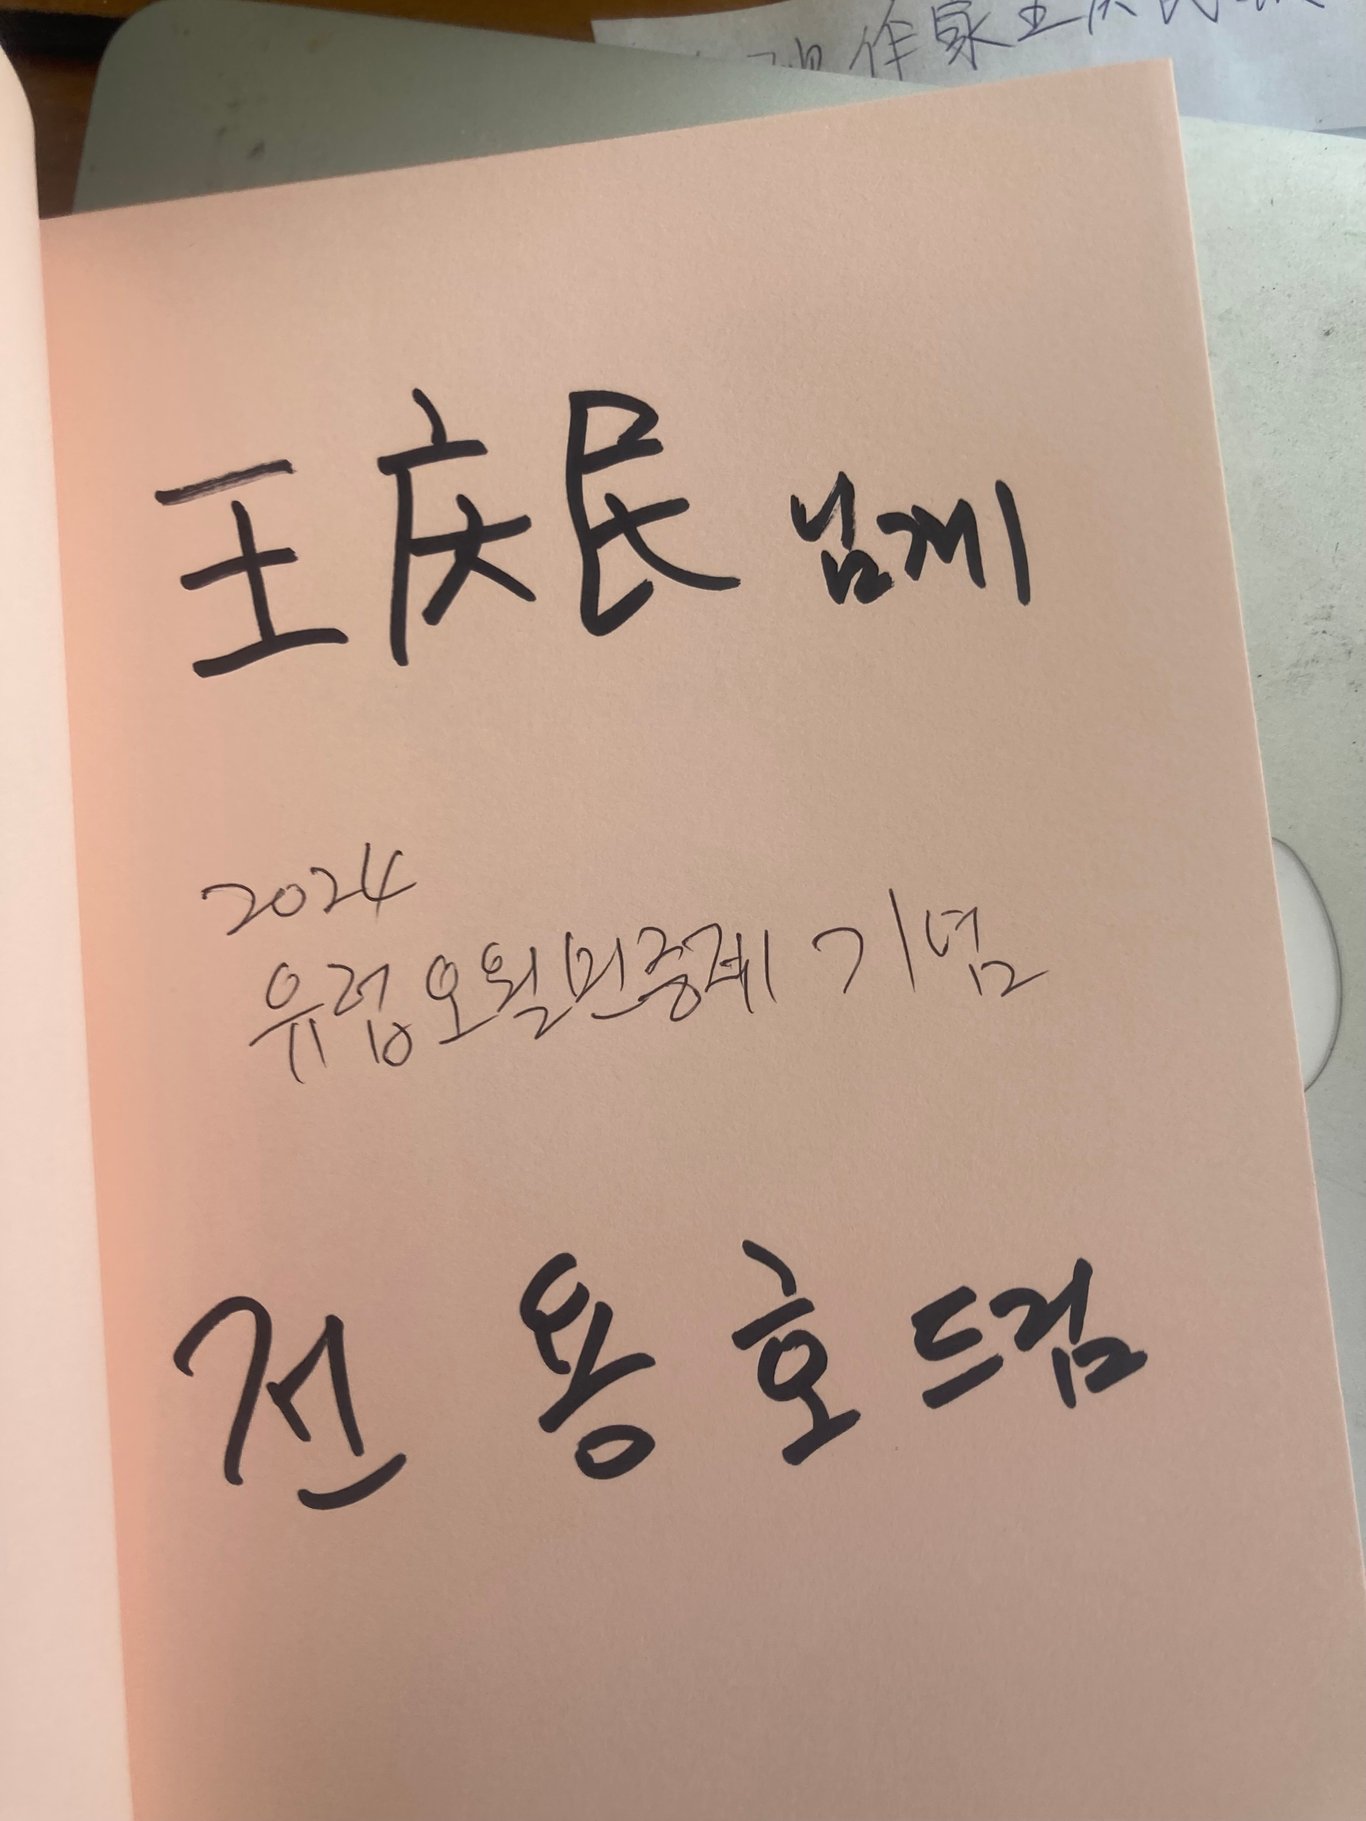 作家王庆民
王庆民 님께
2024
유럽오월민중제 기념
전용호 드림